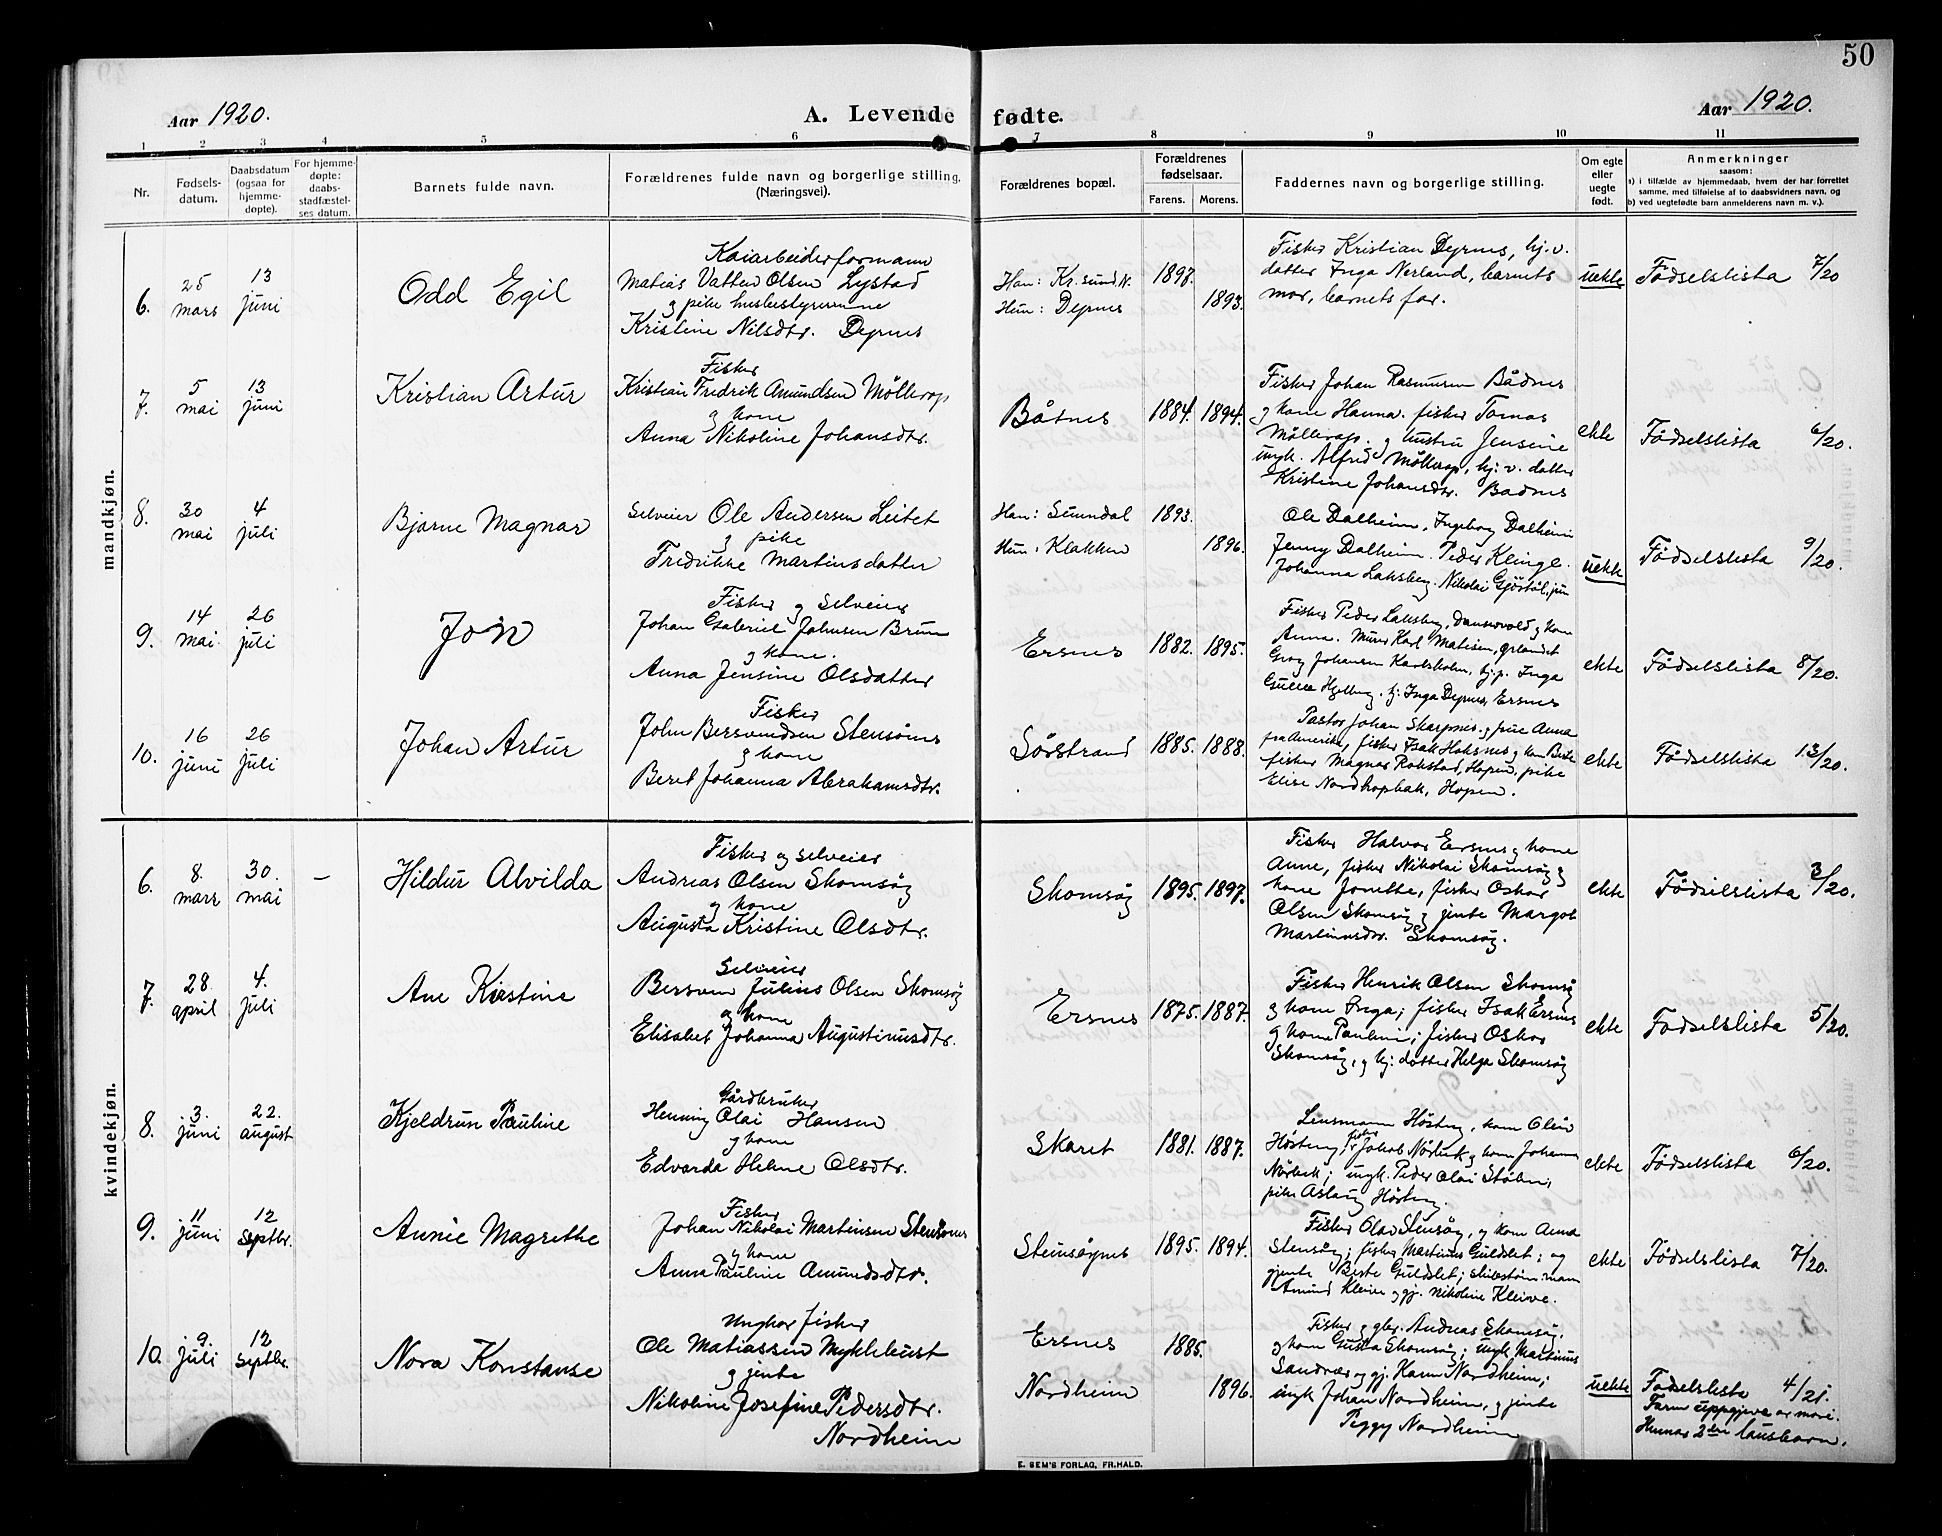 50
Aar 1920.
A. Levende fødte.
Aar 1920.
1 2 3 4 5 6 7 8 9 10 11
Nr.
Fødsels-
datum.
Daabsdatum
(ogsaa for
hjemme-
døpte).
For hjemme-
døpte:
daabs-
stadfæstel-
ses datum.
Barnets fulde navn.
Forældrenes fulde navn og borgerlige stilling.
(Næringsvei).
Forældrenes bopæl.
Forældrenes
fødselsaar.
Farens. Morens.
Faddernes navn og borgerlige stilling.
Om egte
eller
uegte
født.
Anmerkninger
saasom:
a) i tilfælde av hjemmedaab, hvem der har forrettet
samme, med tilføielse af to daabsvidners navn, og
b) ved uegtefødte barn anmelderens navn m. v.).
mandkjøn.
6.
25 mars
13 juni
Odd Egil
Kaiarbeiderformann
Matias Vatten Olsen Lystad
og pike husbestyrerinne
Kristine Nilsdtr. Dyrnes
Han: Kr.sund N.
Hun: Dyrnes
1893.
Fisker Kristian Dyrnes, hj. v.
datter Inga Nerland, barnets
mor, barnets far.
uekte
Fødselslista 7/20
7.
5 mai
13 juni
Kristian Artur
Fisker
Kristian Fredrik Amundsen Møllerop
og kone
Anna Nikoline Johansdtr.
Båtnes
1884. 1894.
Fisker Johan Rasmussen Bådnes
og kone Hanna. fisker Tomas
Møllerop. og hustru Jensine
ungk. Alfred Møllerop, hj. v. datter
Kristine Johansdtr. Badnes
ekte
Fødselslista 6/20.
8.
30 mai
4 juli
Bjarne Magnar
Selveier Ole Andersen Leitet
og pike
Fredrikke Martinusdatter
Han: Sunndal
Hun: Klakken
1893.
1896.
Ole Dalheim, Ingeborg Dalheim
Jenny Dalheim. Peder Klinge.
Johanna Laksberg. Nikolai
uekte
Fødselslista 9/20.
9.
14 mai
26 juli
Jon
Fisker og Selveier
Johan Gabriel Johnsen Brun
og kone.
Anna Jensine Olsdatter
Ersnes
1882. 1895.
Fisker Peder Laksberg, og kone
Anna. Murer Karl Matisen,
Johansen Karlsholm, hj. p. Inga
hj. Inga Dyrnes, Ersnes
ekte
Fødselslista 8/20.
10.
16 juni
26 juli
Johan Artur
Fisker
John Bersvendsen Stensønes
og kone
Beret Johanna Abrahamsdtr.
Sørstrand
1885. 1888.
Pastor Johan Skarpnes. og frue Anna
fra Amerika, fisker Isak Haksnes og kone
fisker Magnar Rokstad, Hopen, pike
Elise Nordhopbak, Hopen.
ekte
Fødselslista 13/20.
kvindekjøn.
6.
8. mars
30. mai
–
Hildur Alvilda
Fisker og selveier
Andreas Olsen Skomsøg
og kone
Augusta Kristine Olsdtr.
Skomsøg
1895. 1897.
Fisker Halvor Ersnes og kone
Anne, fisker Nikolai Skomsøg og
kone Jonette, fisker Oskar
Olsen Skomsøg og jente Margot
Martinusdtr. Skomsøg.
ekte
Fødselslista 3/20.
7.
28. april
4. juli
Ane Kirstine
Selveier
Bersven Julius Olsen Skomsøg
og kone
Elisabet Johanna Augustinusdtr.
Ersnes
1875. 1887.
Fisker Henrik Olsen Skomsøg
og kone Inga; fisker Isak Ersnes
og kone Pauline; fisker Oskar
Skomsøg, og hj: datter Helga Skomsøg
ekte
Fødselslista 5/20.
8.
3. juni
22. august
Kjeldrun Pauline
Gårdbruker
Henning Olai Hansen
og kone
Edvarda Helene Olsdtr.
Skaret
1881. 1887.
Lensmann Høsteng, kone Olein
Høsteng, fisker Jakob Nørbek og kone Johanna
Nørbek; ungk. Peder Olai Støhen,
pike Aslaug Høsteng.
ekte
Fødselslista 6/20.
9.
11 juni
12 septbr.
Annie Magrethe
Fisker
Johan Nikolai Martinsen Stensønes
og kone
Anna Pauline Amundsdtr.
Steinsøynes
1895. 1894.
Fisker Olav Stensøy, og kone Anna
Stensøy; fisker Martinus Guldslet; og
jente Guldslet;
Amund Kleive og gj. Nikoline Kleive.
ekte
Fødselslista 7/20.
10.
9. juli
12 septbr.
Nora Konstanse
Ungkar fisker
Ole Matiassen Myklebust
og jente
Nikoline Josefine Pedersdtr.
Nordheim
Ersnes
Nordheim
1885.
1896.
Fisker og gbr. Andreas Skomsøg.
og kone Gusta Skomsøg; ungk Martinus
Sandnær og gj. Hanna Nordheim;
ungk Johan Nordheim, og jente
Peggy Nordheim
uekte
Fødselslista 4/21.
Faren uppgjeve av mori.
Hennar 2den lausbarn.
E. SEM'S FORLAG, FR.HALD.